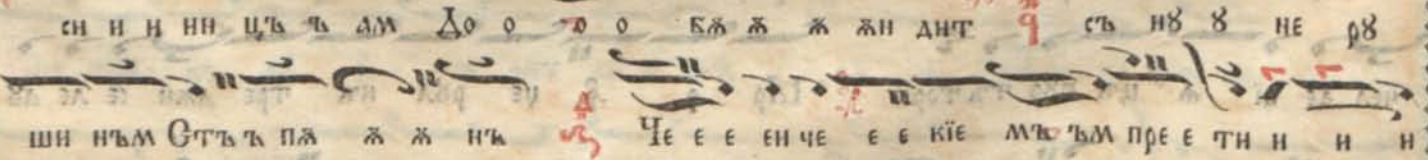 си и и ни цъ ъ ам До о о о бѫ ѫ ѫ ѫи дит съ нꙋ ꙋ не рꙋ
ши нъм Стъ ъ пѫ ѫ ѫ нъ Че е е ен че е е кїе мъ ъм пре е ти и и и